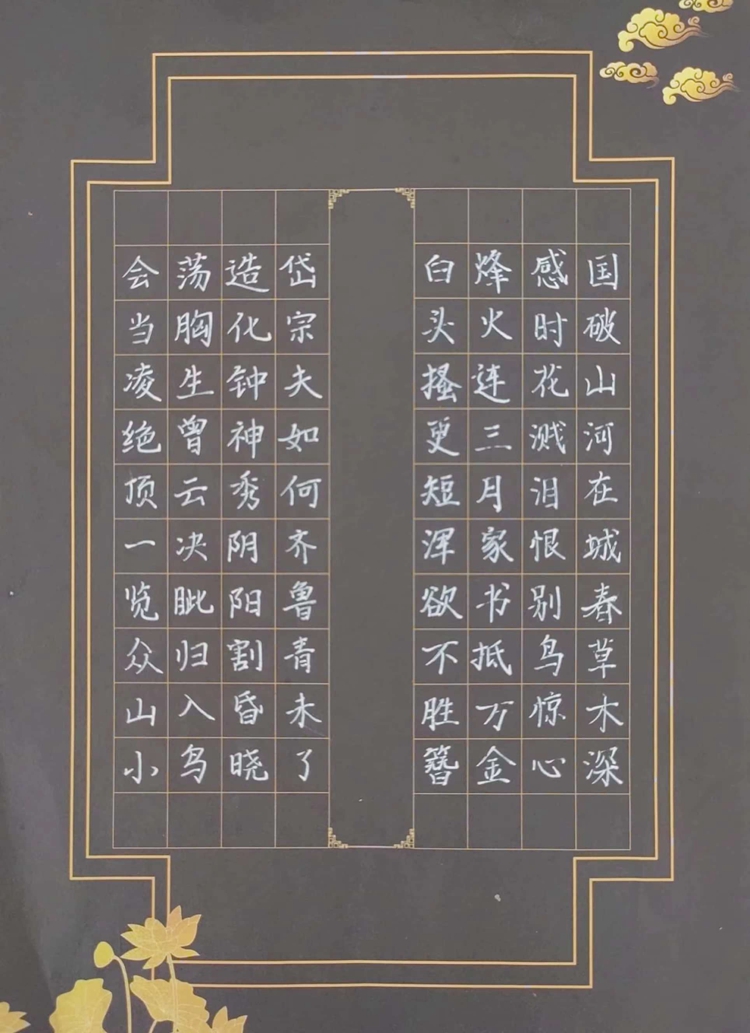 国破山河在城春草木深
感时花溅泪恨别鸟惊心
烽火连三月家书抵万金
白头搔更短浑欲不胜簪
岱宗夫如何齐鲁青未了
造化钟神秀阴阳割昏晓
荡胸生曾云决眦归入鸟
会当凌绝顶一览众山小